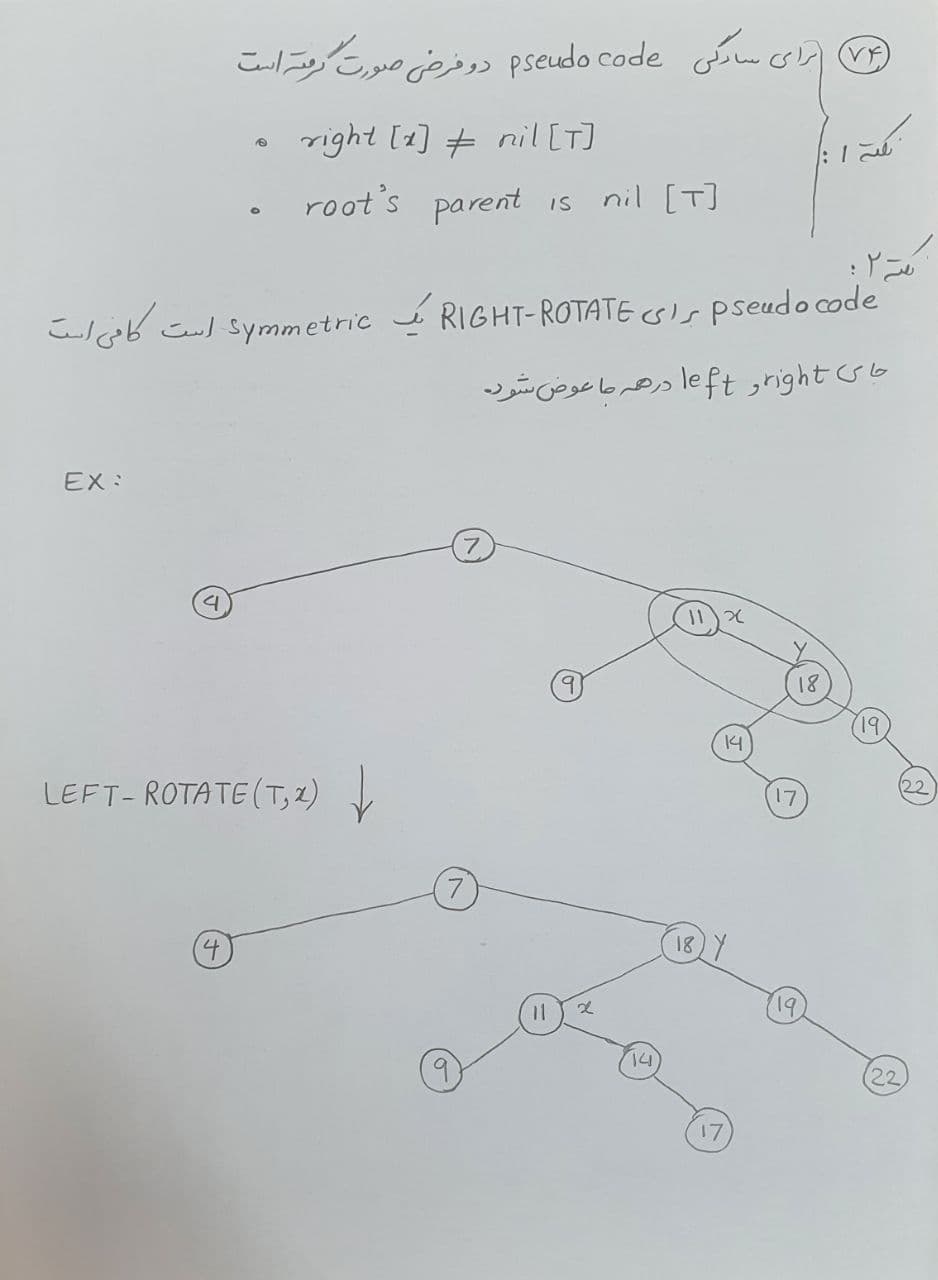 ۷۴
نکته ۱:
برای سادگی pseudo code دو فرض صورت گرفته است
• right [x] ≠ nil [T]
• root's parent is nil [T]
نکته ۲:
pseudo code برای RIGHT-ROTATE یک symmetric است کافی است
جای right و left در همه جا عوض شود
EX:
7
4
11 x
y
9
18
14
19
17
22
LEFT-ROTATE(T,x) ↓
7
4
18 y
11 x
19
9
14
22
17